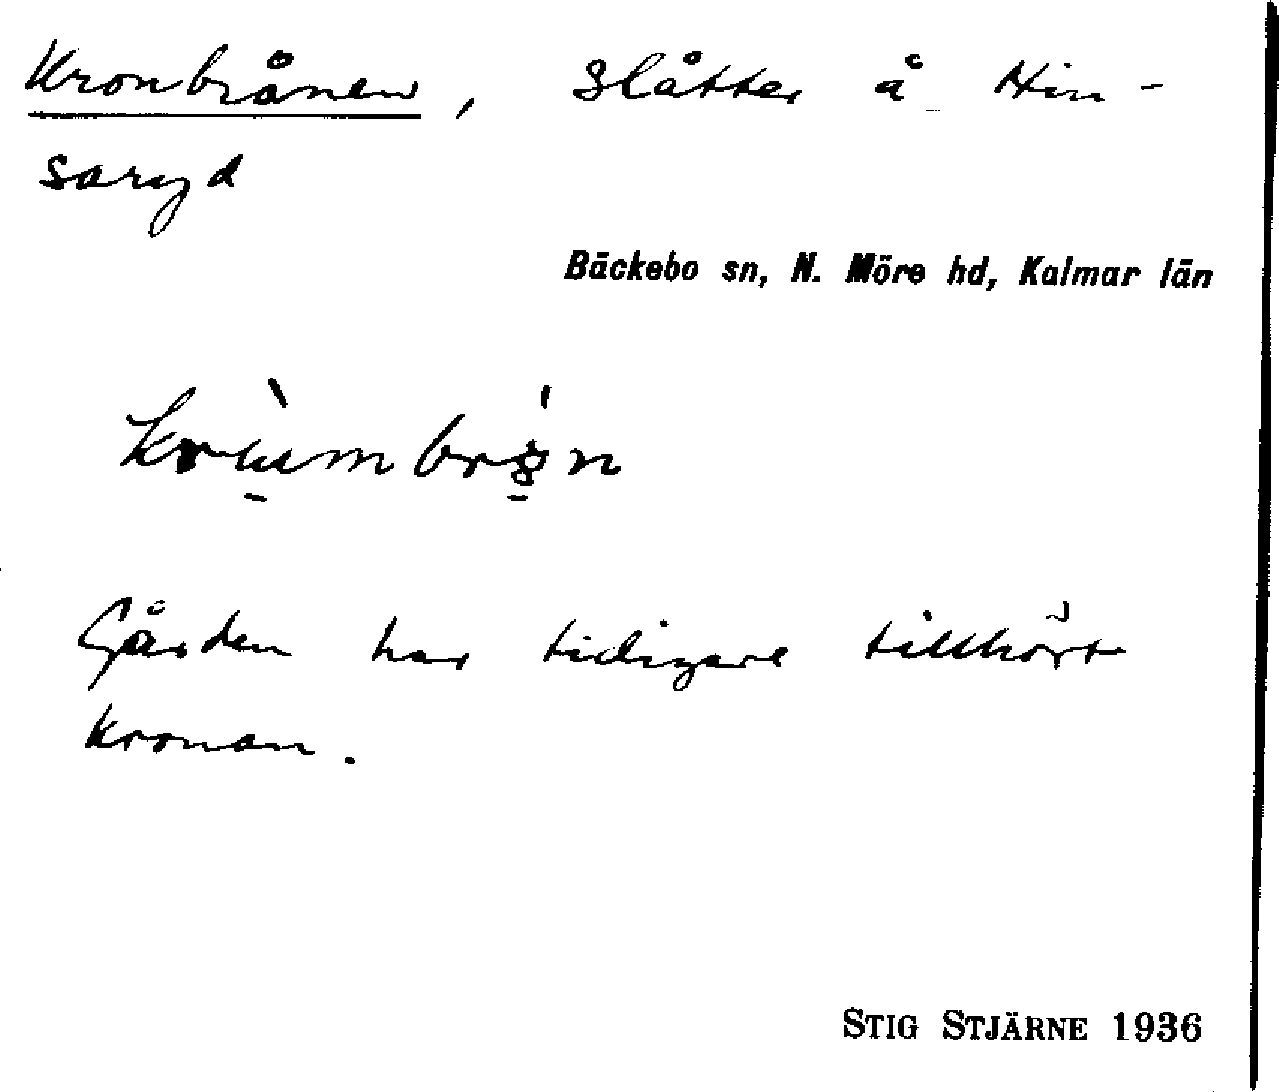 Kronbrånen, Slåtter å Hin-
saryd
Bäckebo sn, N. Möre hd, Kalmar län
Gården har tidigare tillhört
kronan.
STIG STJÄRNE 1936